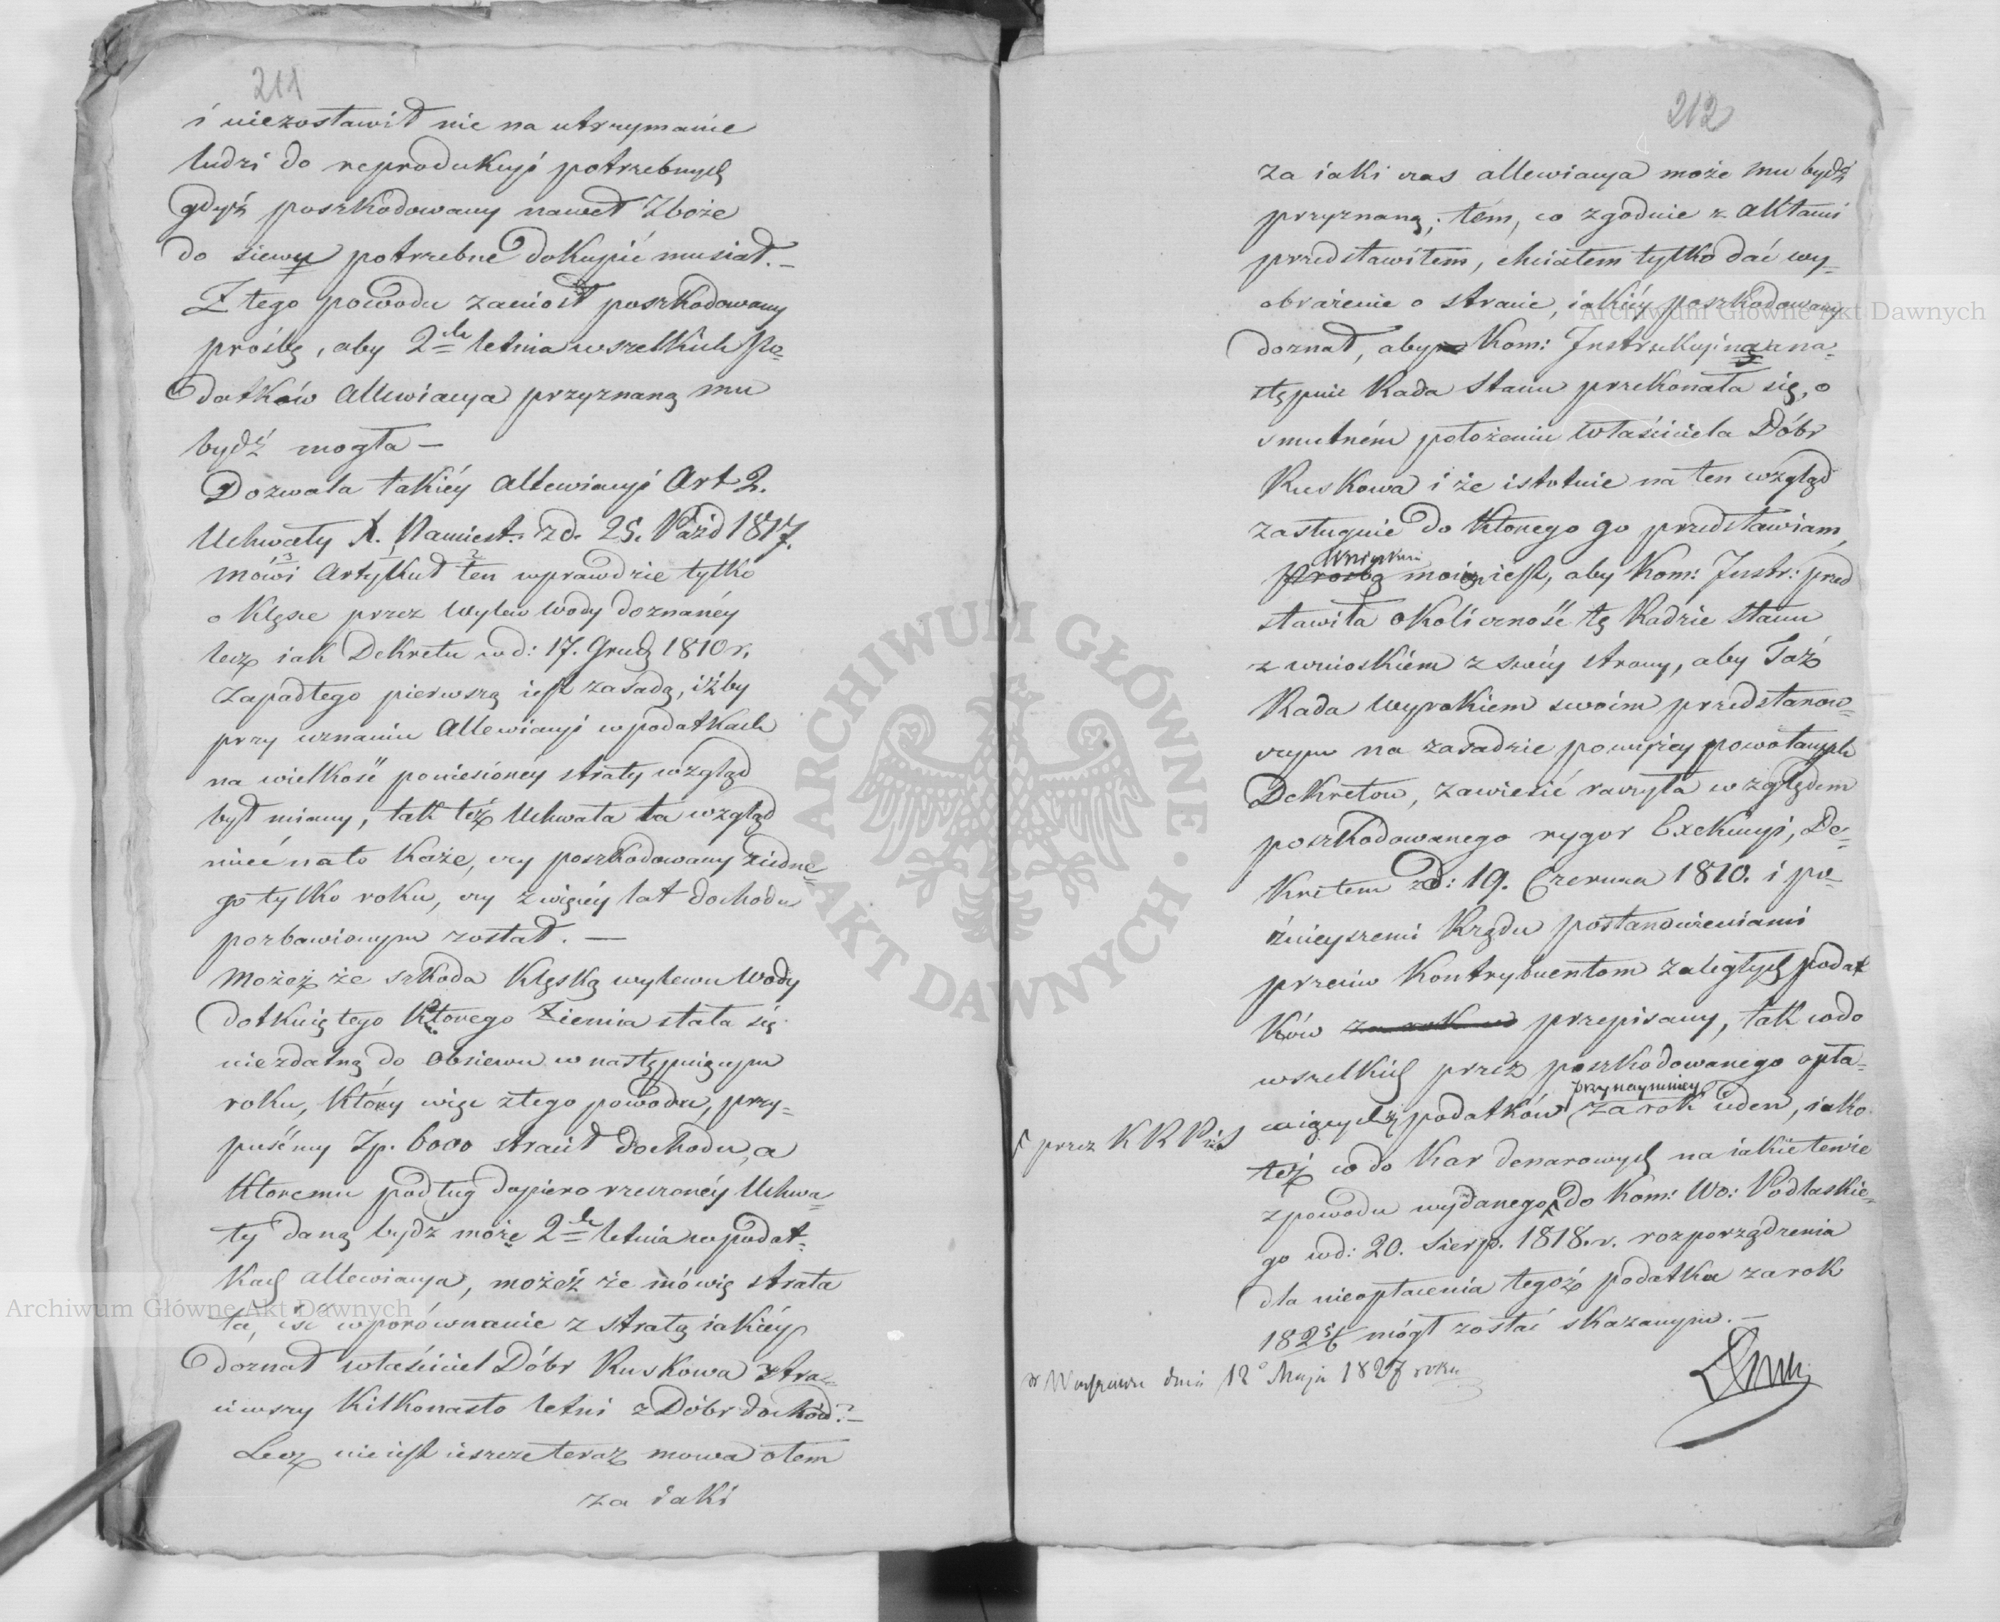 211
i niezostawił nic na utrzymanie
ludzi do reprodukcyi potrzebnych
gdyż poszkodowany nawet zboże
do siewu potrzebne dokupić musiał. –
Z tego powodu zaniosł poszkodowany
prośbę, aby 2ch letnia wszelkich Po-
datków allewiacya przyznaną mu
bydź mogła –
Dozwala takiéy allewiacyi Art 2.
Uchwały X. Namiest. z d. 25. Paźd 1817.
mówi Artykuł ten wprawdzie tylko
o klęsce przez wylew wody doznanéy
lecz iak Dekretu w d: 17. Grud 1810 r.
zapadłego pierwszą iest zasadą, iżby
przy uznaniu Allewiacyi w podatkach
na wielkość poniesionéy straty wzgląd
był miany, tak téż Uchwała ta wzgląd
mieć na to każe, czy poszkodowany z iedne-
go tylko roku, czy z więcéy lat dochodu
pozbawionym został. –
Możoż że szkoda klęską wylewu wody
dotkniętego którego ziemia stała się
niezdatną do obsiewu w następuiącym
roku, który więc z tego powodu, przy-
puśćmy Zp. 6000 stracił dochodu, a
któremu podług dopiero rzeczonéy Uchwa-
ły daną bydź może 2ch letnia w podat-
kach allewiacya, możeż że mówię strata
ta, iść w porównanie z stratą iakiéy
doznał właściciel Dóbr Ruskowa stra-
ciwszy kilkonasto letni z Dóbr dochód? –
Lecz nie iest ieszcze teraz mowa o tem
za iaki
212
za iaki czas allewiacya może mu bydź
przyznaną; tém, co zgodnie z aktami
przedstawiłem, chciałem tylko dać wy-
obrażenie o stracie, iakiéy poszkodowany
doznał, aby Kom: Instrukcyina a na-
stępnie Rada Stanu przekonała się, o
smutném położeniu właściciela Dóbr
Ruskowa i że istotnie na ten wzgląd
zasługuie do którego go przedstawiam,
Wnioskiem
prośbą moim iest, aby Kom: Instr: przed
stawiła okoliczność tę Radzie Stanu
z wnioskiem z swéy strony, aby Taż
Rada Wyrokiem swoim przedstanow-
czym na zasadzie powyżéy powołanych
Dekretow, zawiesić raczyła względem
poszkodowanego rygor Exekucyi, De-
kretem z d: 19. Czerwca 1810. i po-
źnieyszemi Rządu postanowieniami
przeciw kontrybuentom zaległych podat
ków za rok przepisany, tak codo
wszelkich przez poszkodowanego opła-
przynaymniéy
caiących się podatków za rok ieden, iako
téż co do kar denarowych na iakie tenże
z powodu wydanego do Kom: Wo: Podlaskie-
przez K R P i S
go w d: 20. Sierp. 1818. r. rozporządzenia
dla nieopłacenia tegoż podatku za rok
1825/6 mógł zostać skazanym. –
w Warszawie dnia 12° Maja 1827 roku
Archiwum Główne Akt Dawnych
Archiwum Główne Akt Dawnych
ARCHIWUM GŁÓWNE · AKT DAWNYCH ·